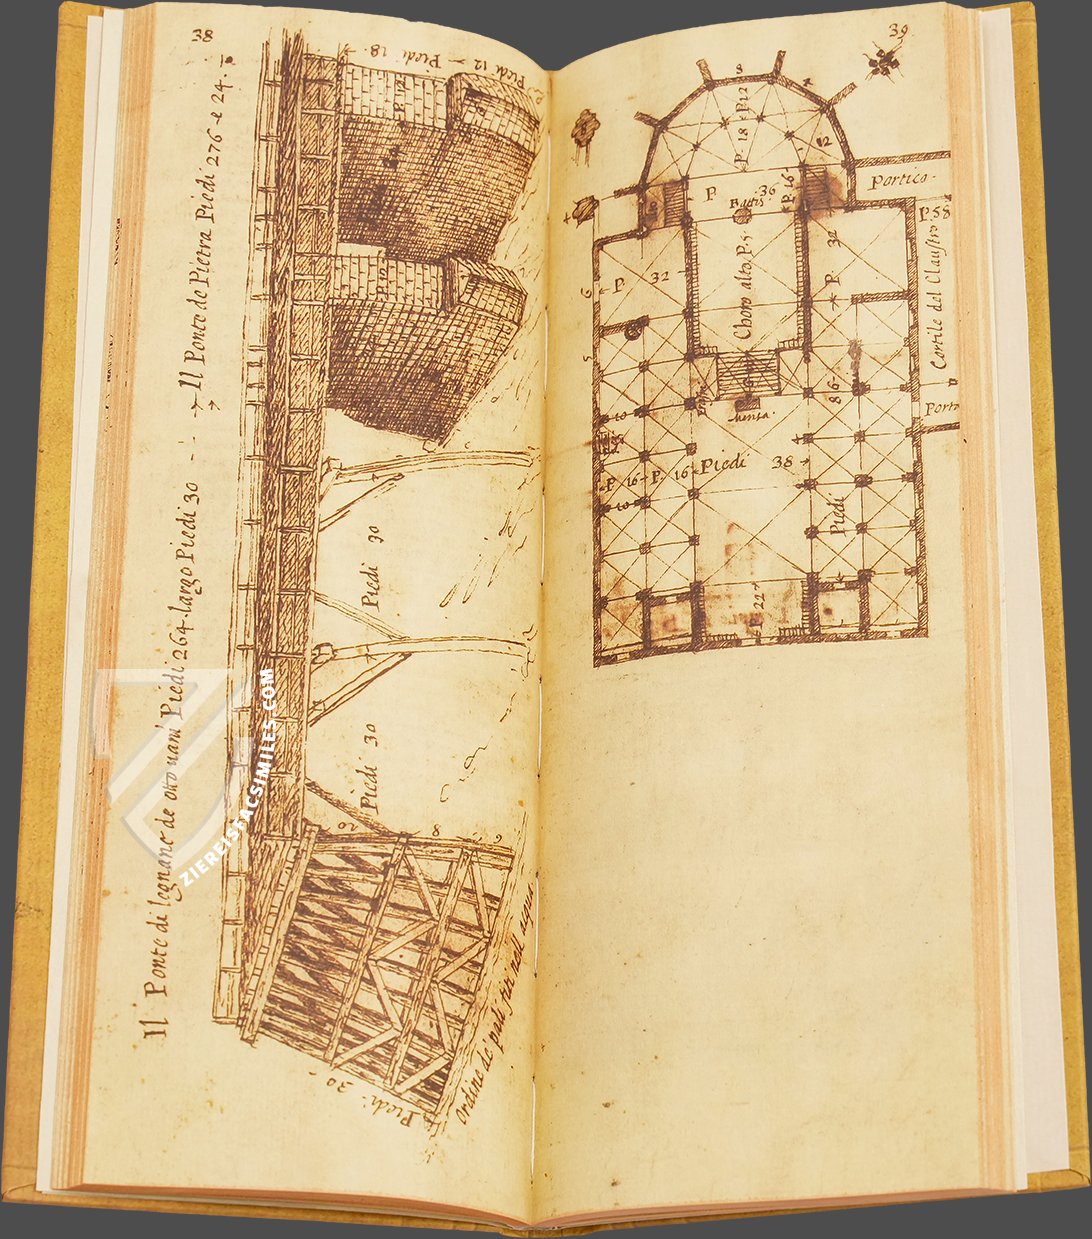 38
Piedi 12
Piedi 18
P. 12
P. 12
Il Ponte de Pietra Piedi 276 e 24.
Il Ponte di legname de otto vani Piedi 264. largo Piedi 30
Piedi 30
Piedi 30
10
8
6
Piedi 30
ordine di pali fitti nell acqua
ZIEREISFACSIMILES.COM
39
8
P 12
P. 18
12
Portico.
P. 58
Cortile del Claustro
Porta
P 36
P. 16
Choro alto P. 5
P. 32
P 32
6
5
mensa.
86
Piedi
10
P 16
P. 16
Piedi 38
10
P 22